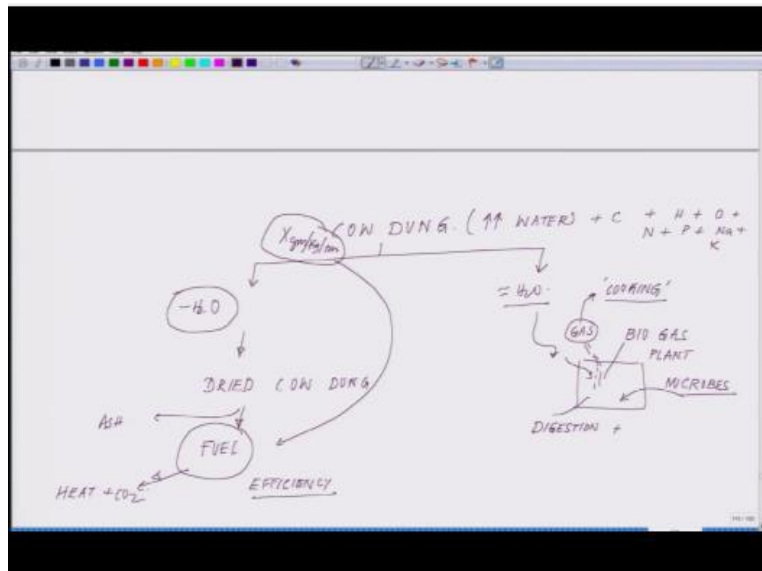 X gm/kg/ton COW DUNG. (↑↑ WATER) + C + H + O +
N + P + Na +
K
-H2O
= H2O.
"COOKING"
GAS
BIO GAS
PLANT
MICROBES
DIGESTION +
DRIED COW DUNG
ASH
FUEL
HEAT + CO2
EFFICIENCY